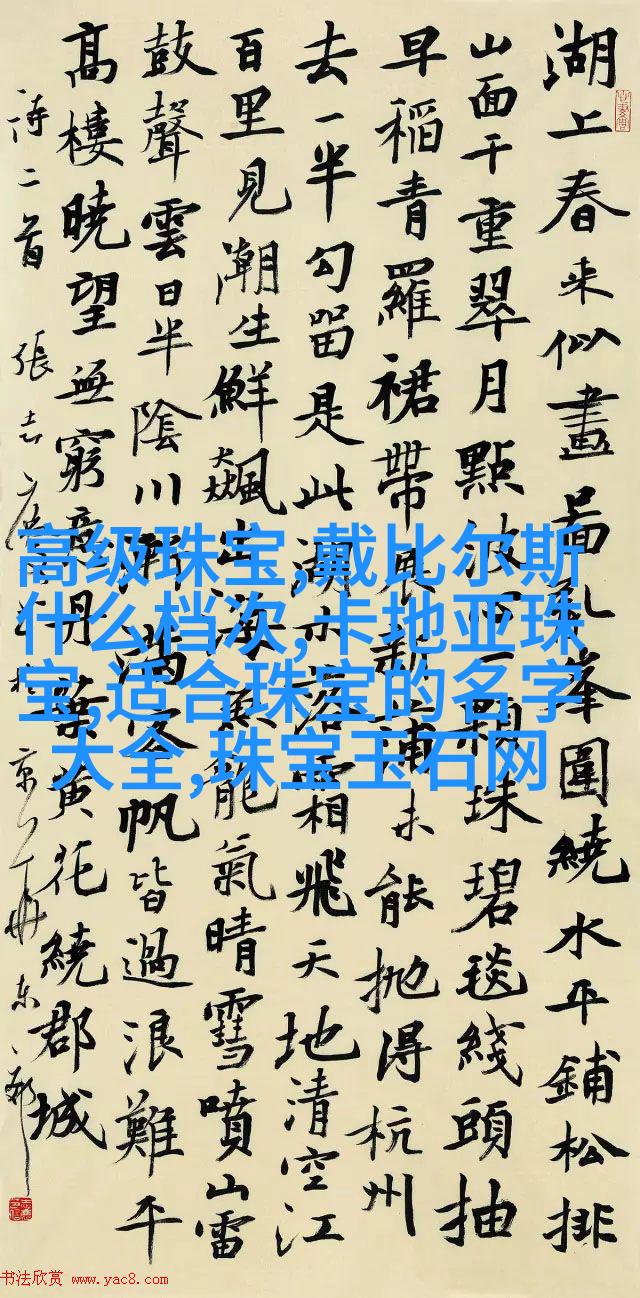 湖上春来似畫啚乱峯圍繞水平鋪松排
山面千重翠月點波心一顆珠碧毯綫頭抽
早稻青羅裙帶展新蒲未能抛得杭州
去一半勾留是此湖水落霜飛天地清空江
百里見潮生鮮飆出海魚龍氣晴雪噴山雷
鼓聲雲日半陰川漸滿客帆皆過浪難平
高樓曉望無窮意丹葉黄花繞郡城
诗二首 張志
高级珠宝,戴比尔斯
什么档次,卡地亚珠
宝,适合珠宝的名字
大全,珠宝玉石网
书法欣赏 www.yac8.com